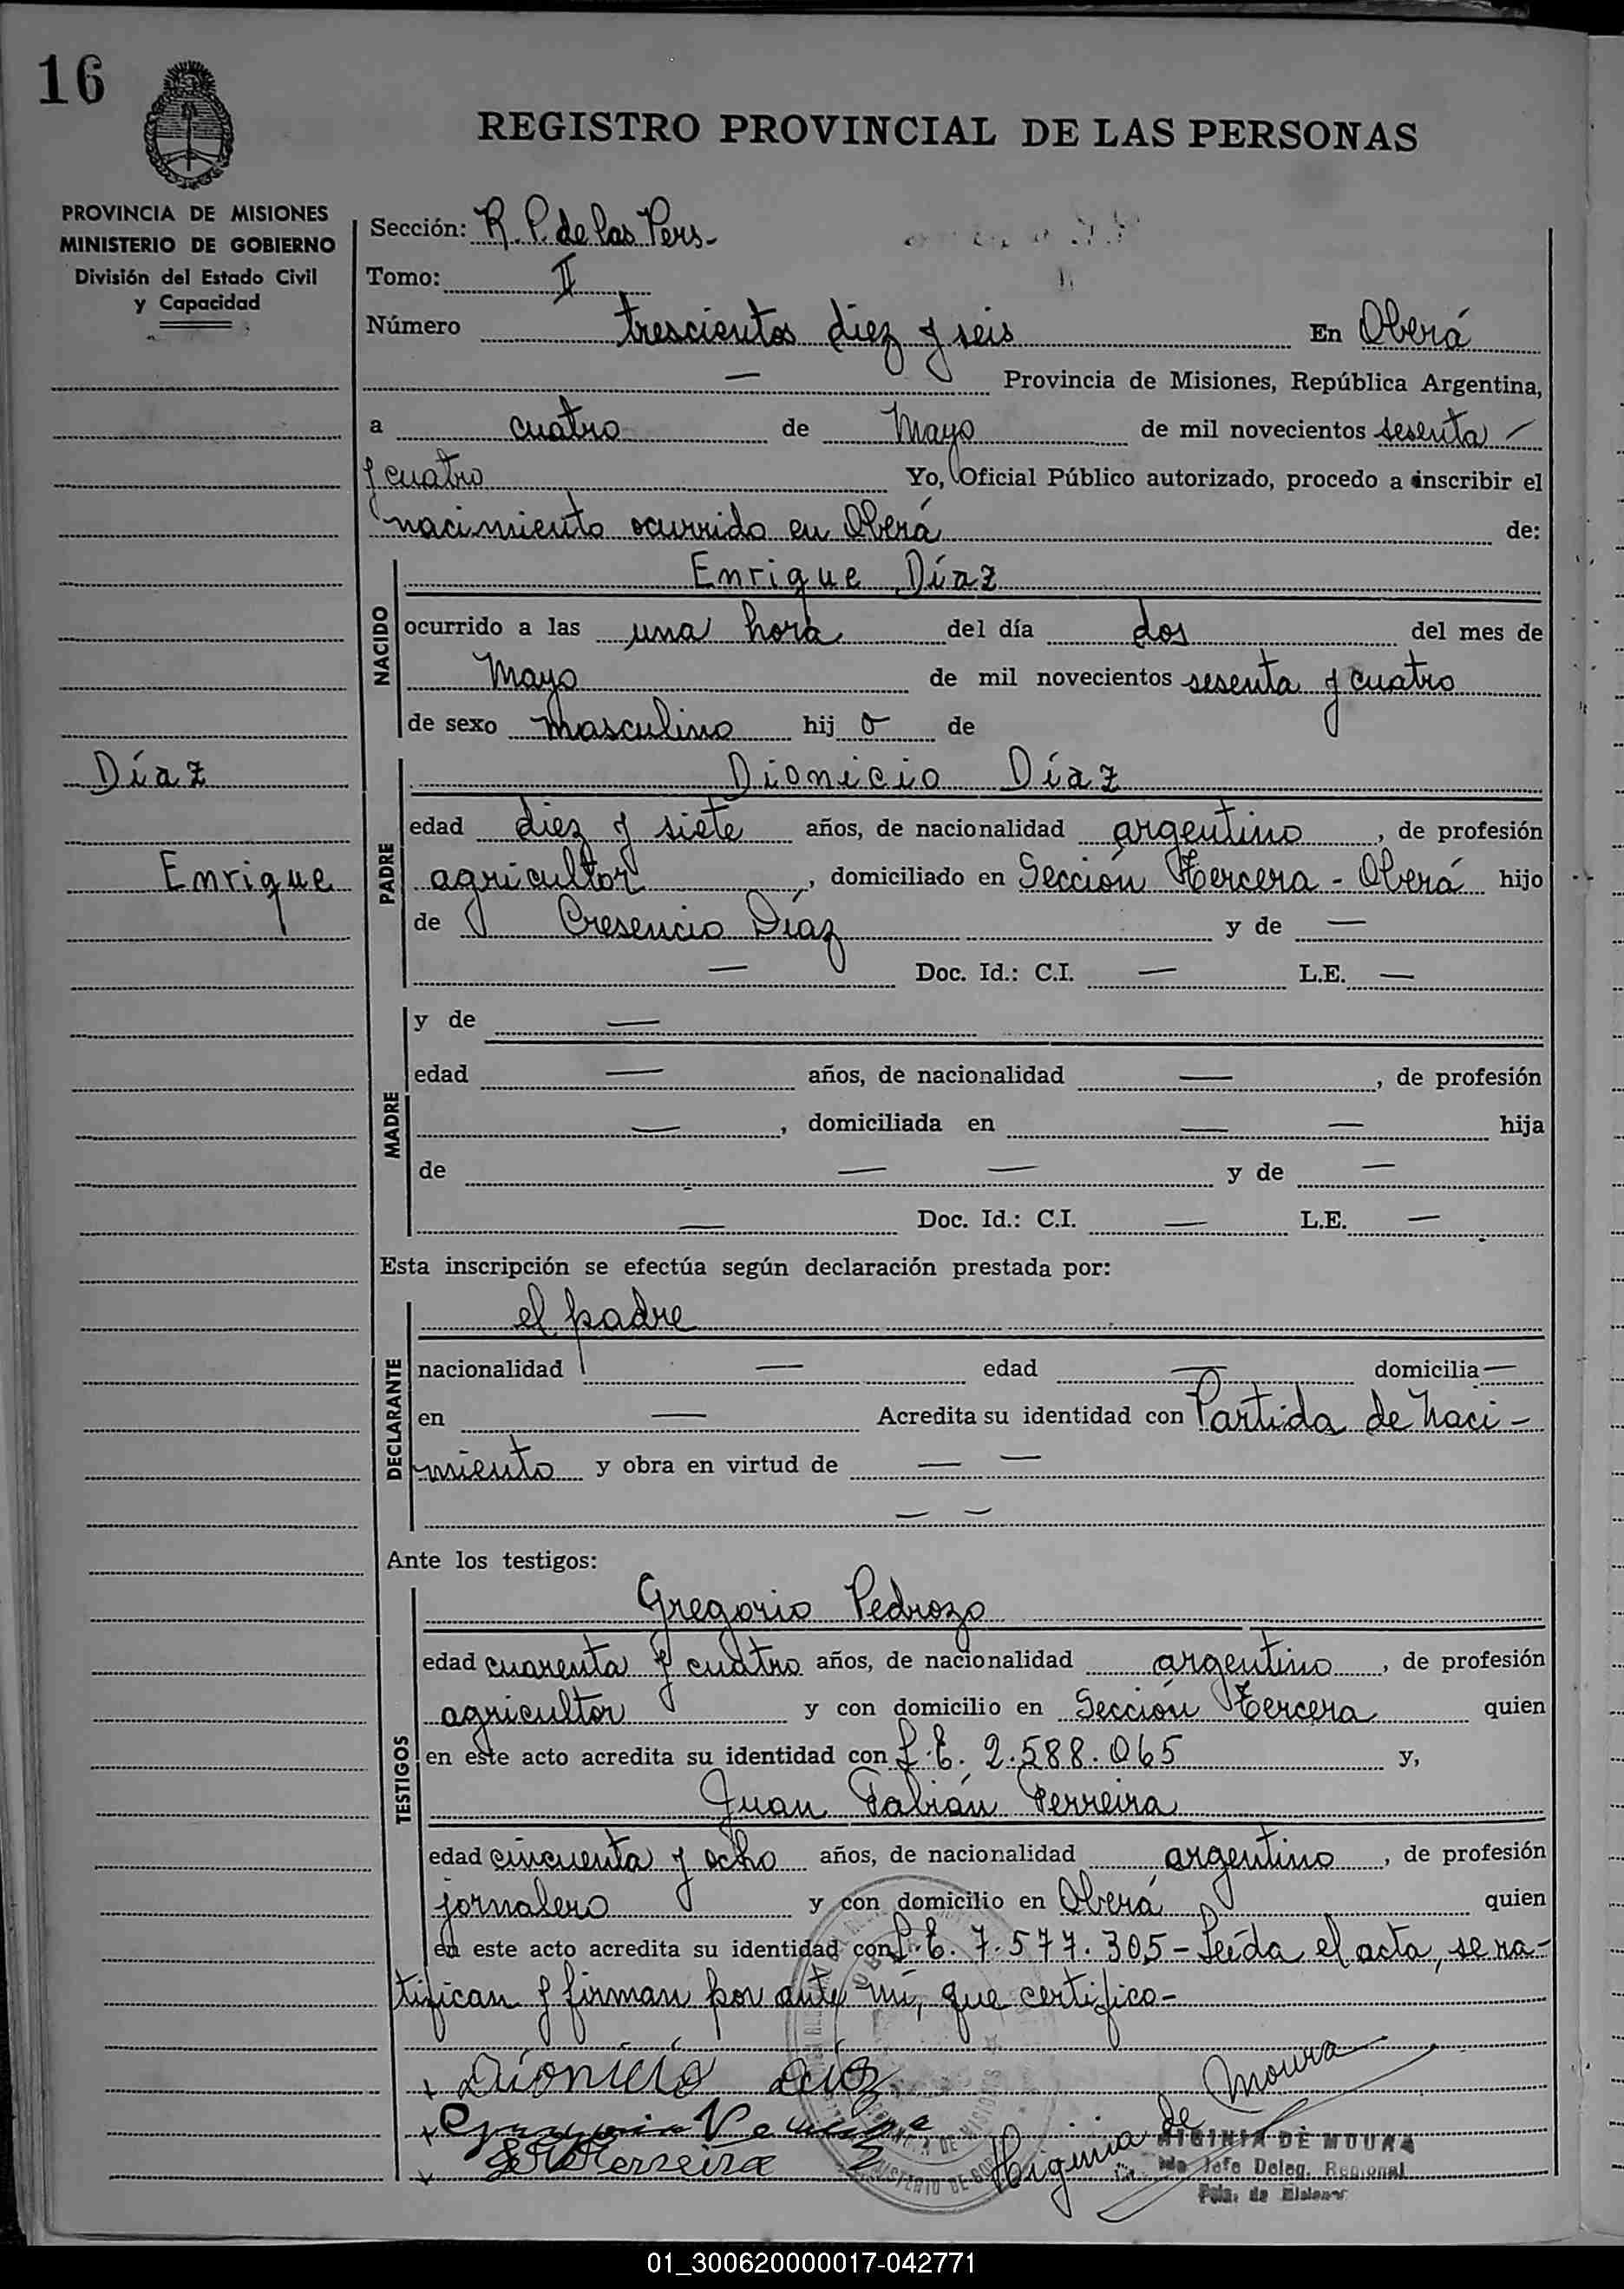 16
REGISTRO PROVINCIAL DE LAS PERSONAS
PROVINCIA DE MISIONES
MINISTERIO DE GOBIERNO
División del Estado Civil
y Capacidad
Sección: R. P. de las Pers.-
Tomo: II
Número trescientos diez y seis En Oberá
— Provincia de Misiones, República Argentina,
a cuatro de Mayo de mil novecientos sesenta —
y cuatro Yo, Oficial Público autorizado, procedo a inscribir el
nacimiento ocurrido en Oberá de:
NACIDO
Enrique Díaz
ocurrido a las una hora del día dos del mes de
Mayo de mil novecientos sesenta y cuatro
de sexo masculino hijo de
Díaz
Enrique
PADRE
Dionicio Díaz
edad diez y siete años, de nacionalidad argentino, de profesión
agricultor, domiciliado en Sección Tercera - Oberá hijo
de Cresencio Díaz y de —
— Doc. Id.: C.I. — L.E. —
MADRE
y de —
edad — años, de nacionalidad —, de profesión
—, domiciliada en — — hija
de — — y de —
— Doc. Id.: C.I. — L.E. —
Esta inscripción se efectúa según declaración prestada por:
DECLARANTE
el padre
nacionalidad — edad — domicilia —
en — Acredita su identidad con Partida de Naci-
miento y obra en virtud de — —
— —
Ante los testigos:
TESTIGOS
Gregorio Pedrozo
edad cuarenta y cuatro años, de nacionalidad argentino, de profesión
agricultor y con domicilio en Sección Tercera quien
en este acto acredita su identidad con L.E. 2.588.065 y,
Juan Fabián Ferreira
edad cincuenta y ocho años, de nacionalidad argentino, de profesión
jornalero y con domicilio en Oberá quien
en este acto acredita su identidad con L.E. 7.577.305 - Leída el acta, se ra-
tifican y firman por ante mí, que certifico-
Dionicio Diaz
Ferreira
Higinia de Moura
HIGINIA DE MOURA
Jefe Deleg. Regional
Pcia. de Misiones
01_300620000017-042771